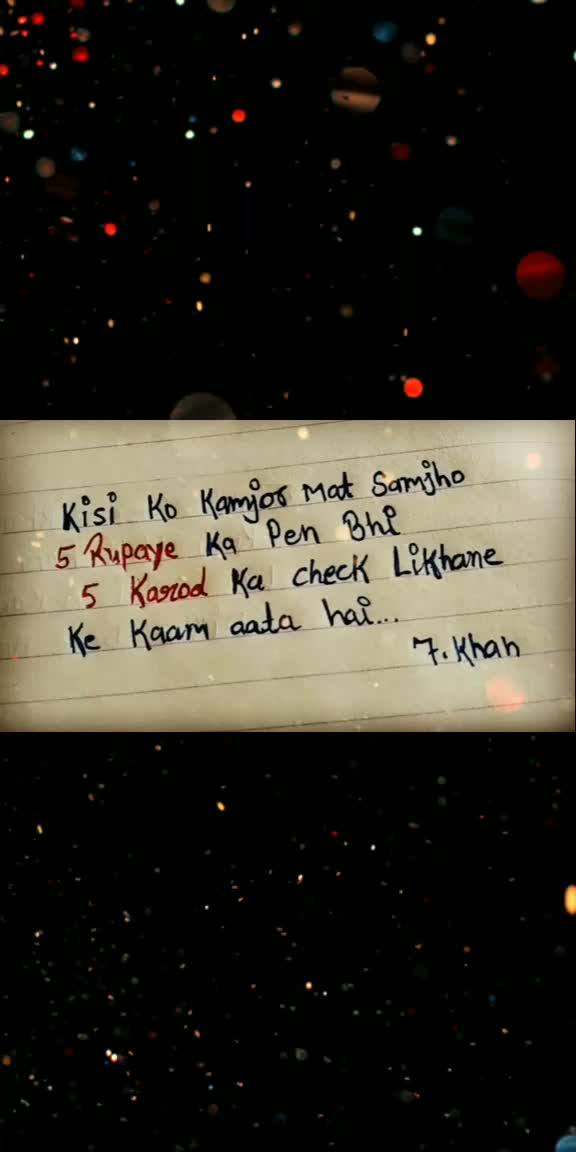 Kisi Ko Kamjor Mat Samjho
5 Rupaye Ka Pen Bhi
5 Karod Ka check Likhane
Ke Kaam aata hai...
7.Khan